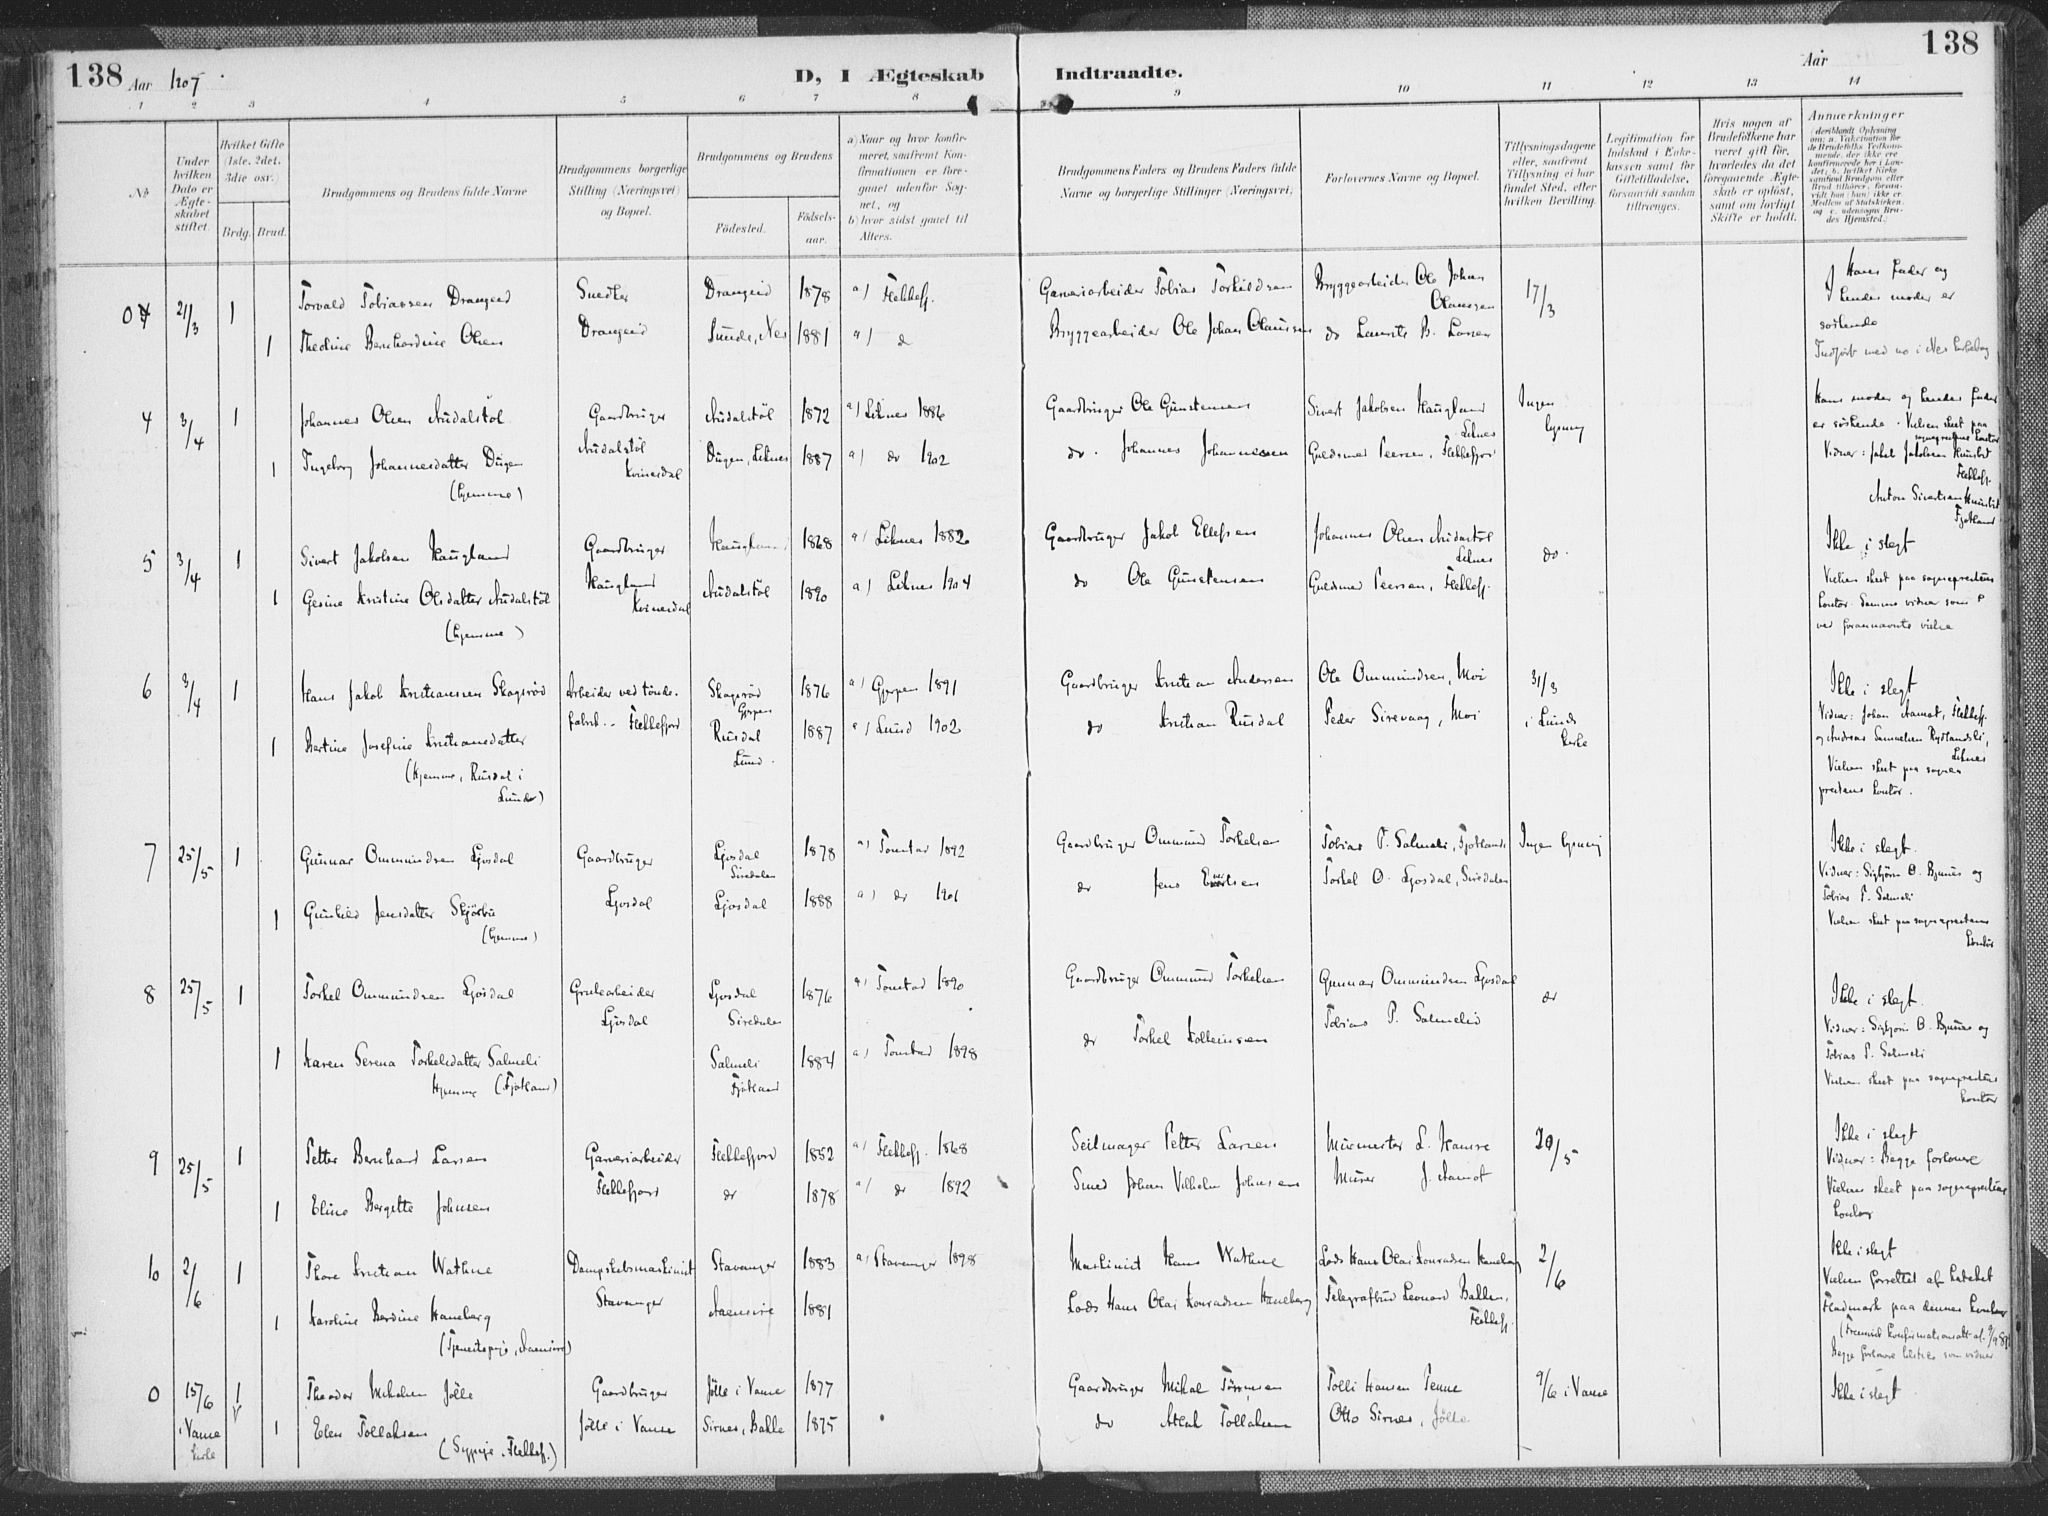 138 Aar 1907. D, I Ægteskab Indtraadte. Aar 138
1 2 3 4 5 6 7 8 9 10 11 12 13 14
No
Under hvilken Dato er Ægteskabet stiftet.
Hvilket Gifte (1ste, 2det, 3die osv.)
Brdg. Brud.
Brudgommens og Brudens fulde Navne
Brudgommens borgerlige Stilling (Næringsvei) og Bopæl.
Brudgommens og Brudens
Fødested. Fødselsaar.
a) Naar og hvor konfirmeret, saafremt Konfirmationen er foregaaet udenfor Sognet, og
b) hvor sidst gaaet til Alters.
Brudgommens Faders og Brudens Faders fulde Navne og borgerlige Stillinger (Næringsvei)
Forlovernes Navne og Bopæl.
Tillysningsdagene eller, saafremt Tillysning ei har fundet Sted, efter hvilken Bevilling.
Legitimation for Indskud i Enkekassen samt for Giftetilladelse, forsaavidt saadan tiltrænges.
Hvis nogen af Brudefolkene har været gift før, hvorledes da det foregaaende Ægteskab er opløst, samt om lovligt Skifte er holdt.
Anmærkninger
(deriblandt Oplysning om: a. Vakcination for de Brudefolks Vedkommende, der ikke ere konfirmerede her i Landet; b. hvilket Kirkesamfund Brudgom eller Brud tilhører, forsaavidt han (hun) ikke er Medlem af Statskirken, og c. udensogns Brudes Hjemsted.)
0 21/3 1 Torvald Tobiassen Drangeid Snedker Drangeid 1878 a) Flekkefj. Garveriarbeider Tobias Torkildsen Bryggearbeider Ole Johan Olaussen 17/3 Hans fader og hendes moder er søskende
1 Thedine Bernhardine Olsen Drangeid Sunde, Nes 1881 a) do Bryggearbeider Ole Johan Olaussen do Laurits B. Larsen Indført med no i Nes kirkebog
4 3/4 1 Johannes Olsen Audalstøl Gaardbruger Audalstøl 1872 a) Liknes 1886 Gaardbruger Ole Gunstensen Sivert Jakobsen Haugland Liknes Ingen lysning Hans moder og hendes fader er søskende. Vielsen skeet paa sogneprestens kontor
1 Ingeborg Johannesdatter Dugan (hjemme) Audalstøl Kvinesdal Dugan, Liknes 1887 a) do 1902 do. Johannes Johannessen Guldsmed Peersen, Flekkefjord Vidner: Jakob Jakobsen Flekkefj. Anton Sivertsen Fjotland
5 3/4 1 Sivert Jakobsen Haugland Gaardbruger Haugland 1868 a) Liknes 1882 Gaardbruger Jakob Ellefsen Johannes Olsen Audalstøl Liknes do. Ikke i slegt
1 Gesine Kristine Olsdatter Audalstøl (hjemme) Haugland Kvinesdal Audalstøl 1890 a) Liknes 1904 do Ole Gunstensen Guldsmed Peersen, Flekkefj. Vielsen skeet paa sogneprestens kontor. Samme vidner som ved forannævnte vielse
6 3/4 1 Hans Jakob Kristianssen Skagerød Arbeider ved tøndefabrik - Flekkefjord Skagerød Gjerpen 1876 a) Gjerpen 1891 Gaardbruger Kristian Andersen Ole Ommundsen, Moi 31/3 i Lunds kirke Ikke i slegt
1 Bertine Josefine Kristiansdatter (hjemme, Rusdal i Lunde) Rusdal Lund. 1887 a) Lund 1902 do Kristian Rusdal Peder Sirevaag, Moi Vidner: Johan Aamot, Flekkefj. og Andreas Samuelsen Rydlandsli, Liknes Vielsen skeet paa sogneprestens kontor.
7 25/5 1 Gunnar Ommundsen Ljosdal Gaardbruger Ljosdal Siredalen 1878 a) Tonstad 1892 Gaardbruger Ommund Torkelsen Tobias P. Salmeli, Fjotland Ingen lysning Ikke i slegt.
1 Gunhild Jensdatter Skjørbu (hjemme) Ljosdal Ljosdal 1888 a) do 1901 do Jens Torkel O. Ljosdal, Siredalen Vidner: Sigbjørn O. Bjunes og Tobias P. Salmeli Vielsen skeet paa sogneprestens kontor
8 25/5 1 Torkel Ommundsen Ljosdal Grubearbeider Ljosdal Ljosdal Siredalen 1876 a) Tonstad 1890 Gaardbruger Ommund Torkelsen Gunnar Ommundsen Ljosdal do Ikke i slegt.
1 Karen Serena Torkelsdatter Salmeli Hjemme (Fjotland) Salmeli Fjotland 1884 a) Tonstad 1898 do Torkel Tobias P. Salmelid Vidner: Sigbjørn O. Bjunes og Tobias P. Salmeli Vielsen skeet paa sogneprestens kontor
9 25/5 1 Petter Bernhard Larsen Garveriarbeider Flekkefjord 1852 a) Flekkefj. 1868 Seilmager Petter Larsen Murmester L. Hamre 20/5 Ikke i slegt
1 Eline Bergitte Johnsen Flekkefjord do 1878 a) do 1892 Smed Johan Vilhelm Johnsen Murer J. Aamot Vidner: Begge forlovere Vielsen skeet paa sogneprestens kontor
10 2/6 1 Thore Kristian Wathne Dampskibsmaskinist Stavanger 1883 a) Stavanger 1898 Maskinist Hans Wathne Lods Hans Olai Konradsen Haneberg 2/6 Ikke i slegt
1 Karoline Berdine Haneberg (Tjenestepige, Aaensire) Stavanger Aaensire 1881 Lods Hans Olai Konradsen Haneberg Telegrafbud Leonard Bakken, Flekkefj. Vielsen forrettet af kateket Fladmark paa dennes kontor (Fremvist konfirmationsatt. af 9/9 89) Begge forlovere tilstede som vidner
0 15/6 i Vanse kirke 1 Theodor Mikalsen Jølle Gaardbruger Jølle i Vanse 1877 Gaardbruger Mikal Tørresen Tolli Hansen Penne 9/6 i Vanse Ikke i slegt
1 Elen Tollaksen (Sypige, Flekkefj.) Jølle i Vanse Sirnes, Bakke 1875 do Atlak Tollaksen Otto Sirnes, Jølle